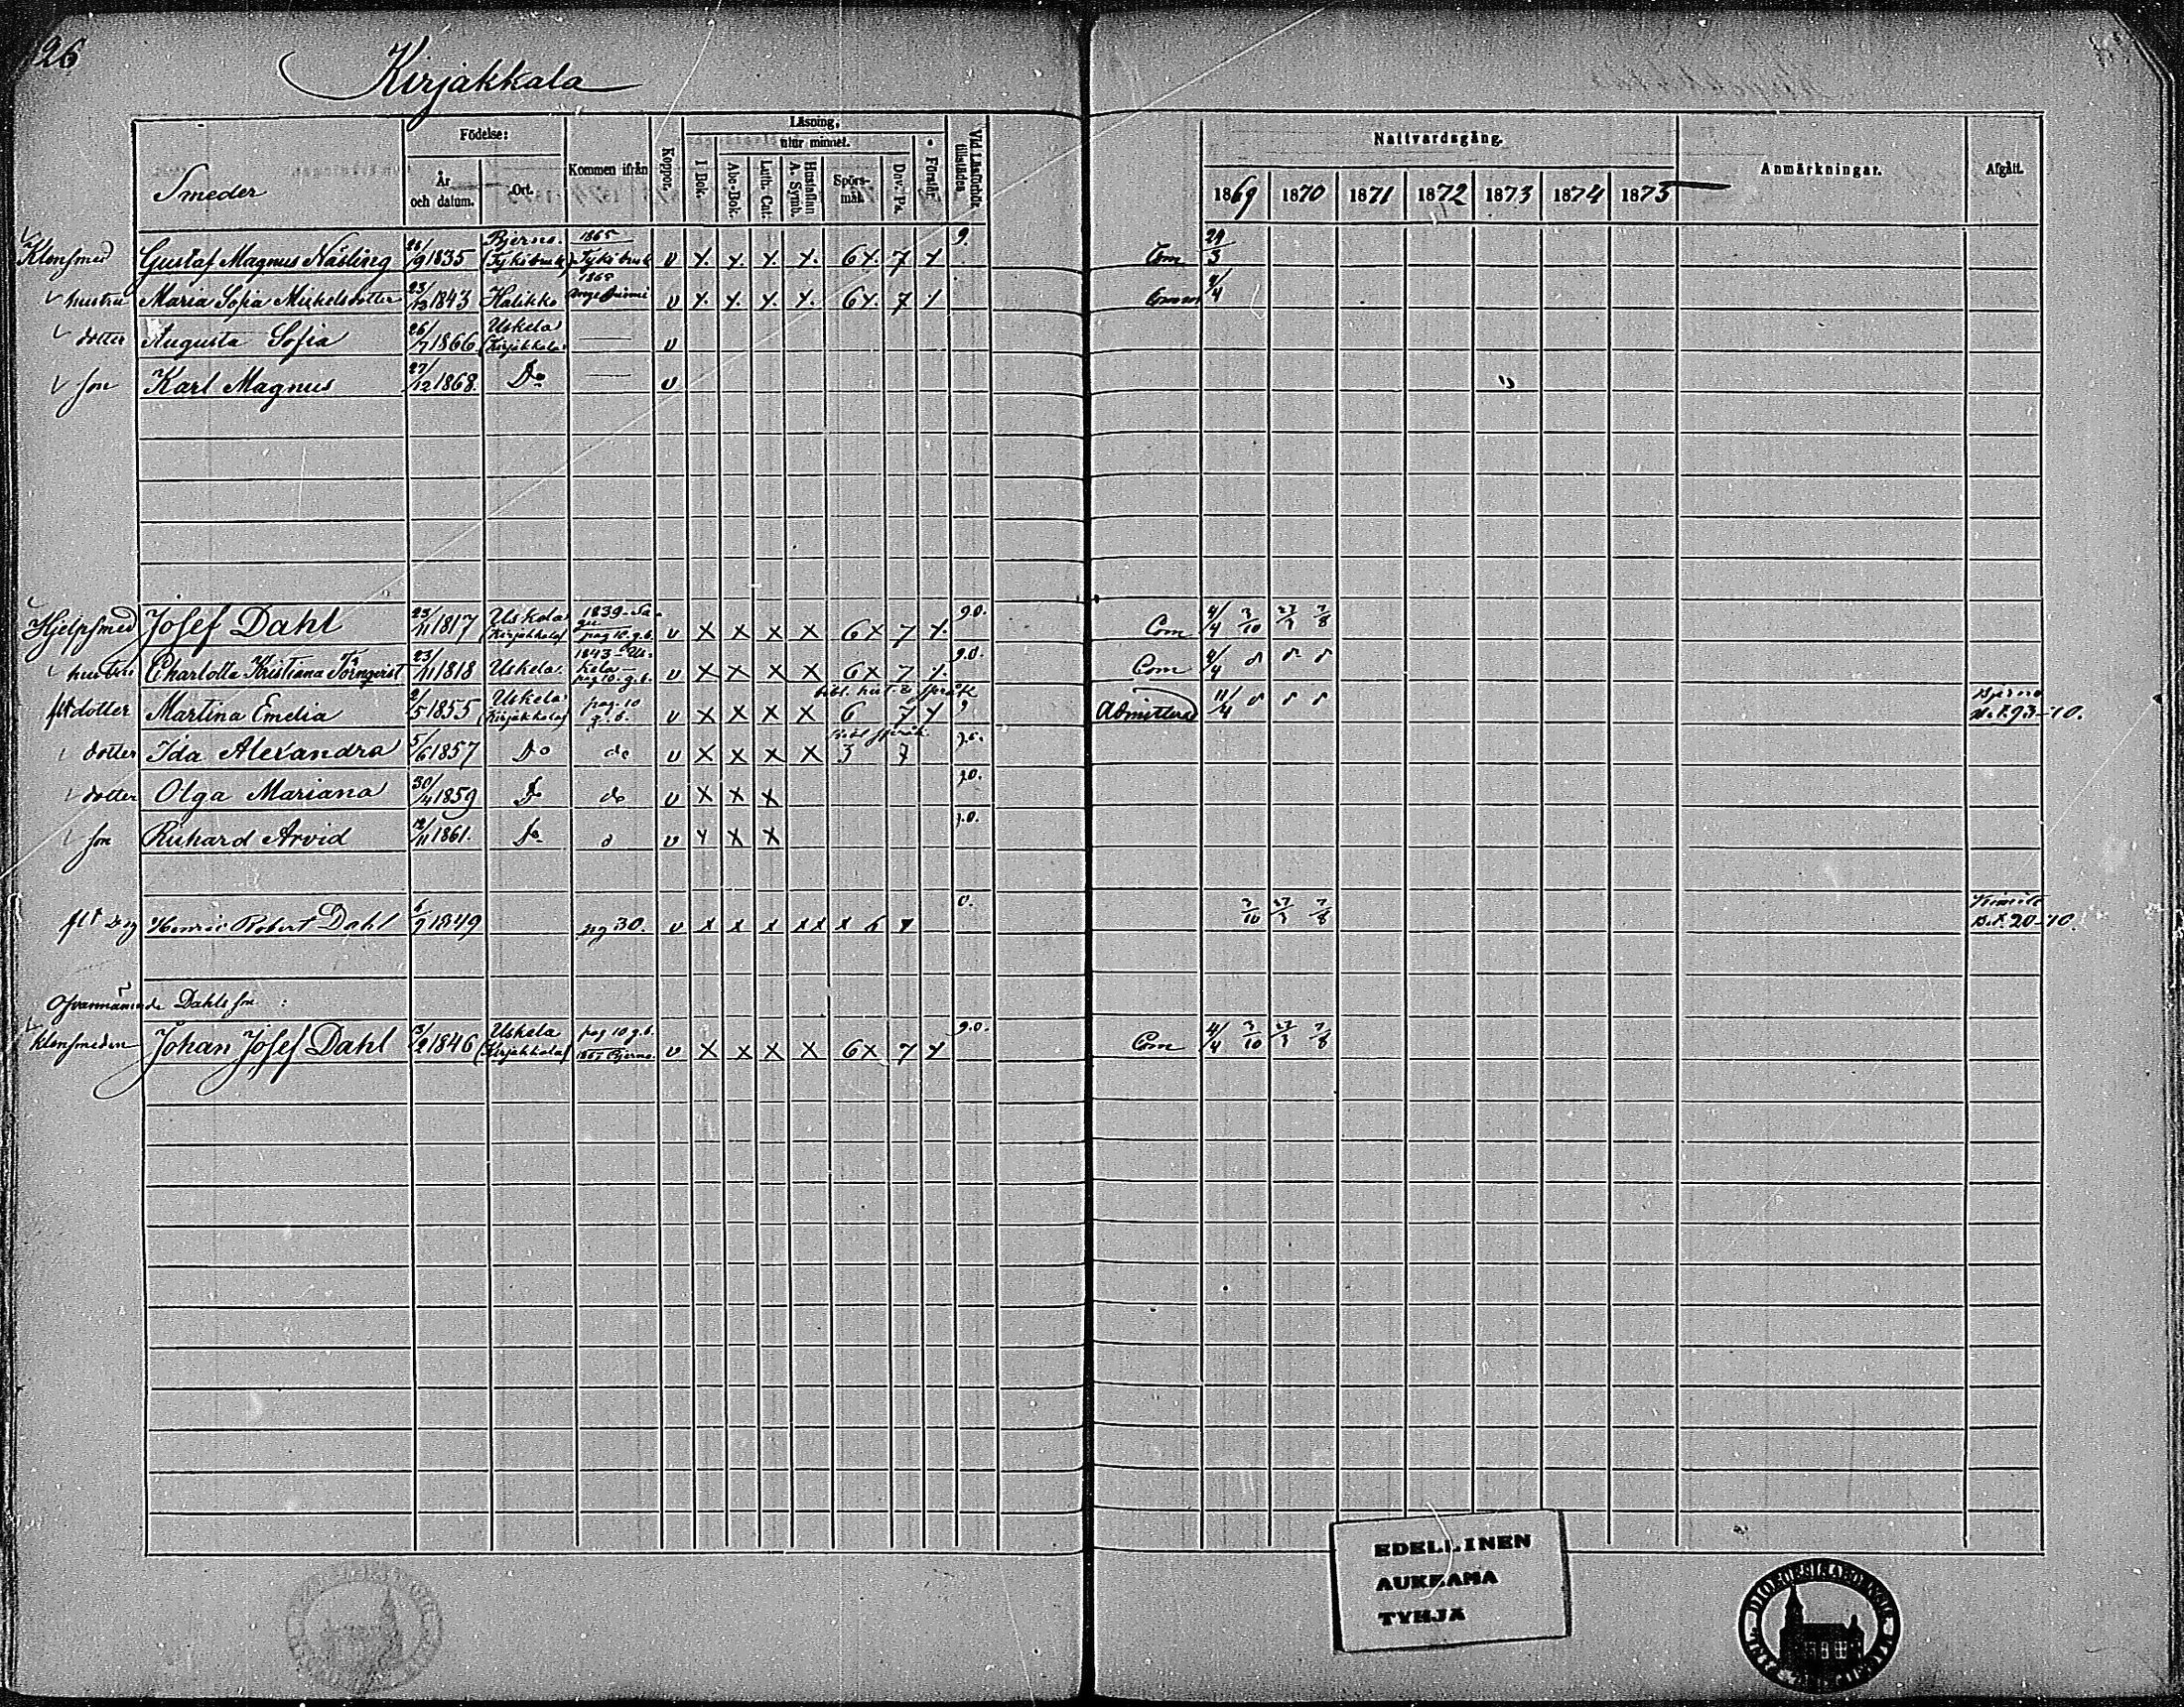 26
Kirjakkala
Smeder
Födelse:
År och datum.
Ort.
Kommen ifrån
Koppor.
Läsning,
utur minnet.
I Bok.
Abc-Bok.
Luth. Cat.
Hustaflan A. Symb.
Spörsmål.
Dav. Ps.
Förstår.
Vid Läsförhör tillstädes.
Nattvardsgång.
1869 1870 1871 1872 1873 1874 1875
Anmärkningar.
Afgått.
Klensmed Gustaf Magnus Näsling 26/9 1835 Bjerno. (Tykö bruk) 1865 Tykö bruk v 6 7 9. Com 29/3
hustru Maria Sofia Mickelsdotter 23/12 1843 Halikko 1865 v 6 7 4/4
dotter Augusta Sofia 26/7 1866 Uskela (Kirjakkala) — v
son Karl Magnus 27/12 1868. Do — v
Hjelpsmed Josef Dahl 25/11 1817 Uskela (Kirjakkala) 1839 Sagu pag 10 g.b. v x x x x 6x 7 9.0. Com 4/4 3/10 27/3 7/8
hustru Charlotta Kristiana Törnqvist 23/11 1818 Uskela. 1843 Uskela pag 10. g.b. v x x x x 6x 7 9.0. Com 4/4
dotter Martina Emelia 2/5 1855 Uskela (Kirjakkala) pag. 10 g.b. v x x x x 6 7 Admitterad 11/4 Bjerno N:o 93-70.
dotter Ida Alexandra 5/6 1857 Do do v x x x x 3 7
dotter Olga Mariana 30/4 1859 Do do v x x x
son Richard Arvid 12/11 1861. Do v x x x
Henric Robert Dahl 1849 pg 30. v x x x x x x 6 7 0. 3/10 27/3 7/8 Kimito 20-70.
Ofvannämnde Dahls son:
Klensmeden Johan Josef Dahl 13/2 1846 Uskela (Kirjakkala) pag 10 g.b. 1867 Bjerno. v x x x x 6x 7 9.0. Com 4/4 3/10 27/3 7/8
EDELLINEN
AUKEAMA
TYHJÄ